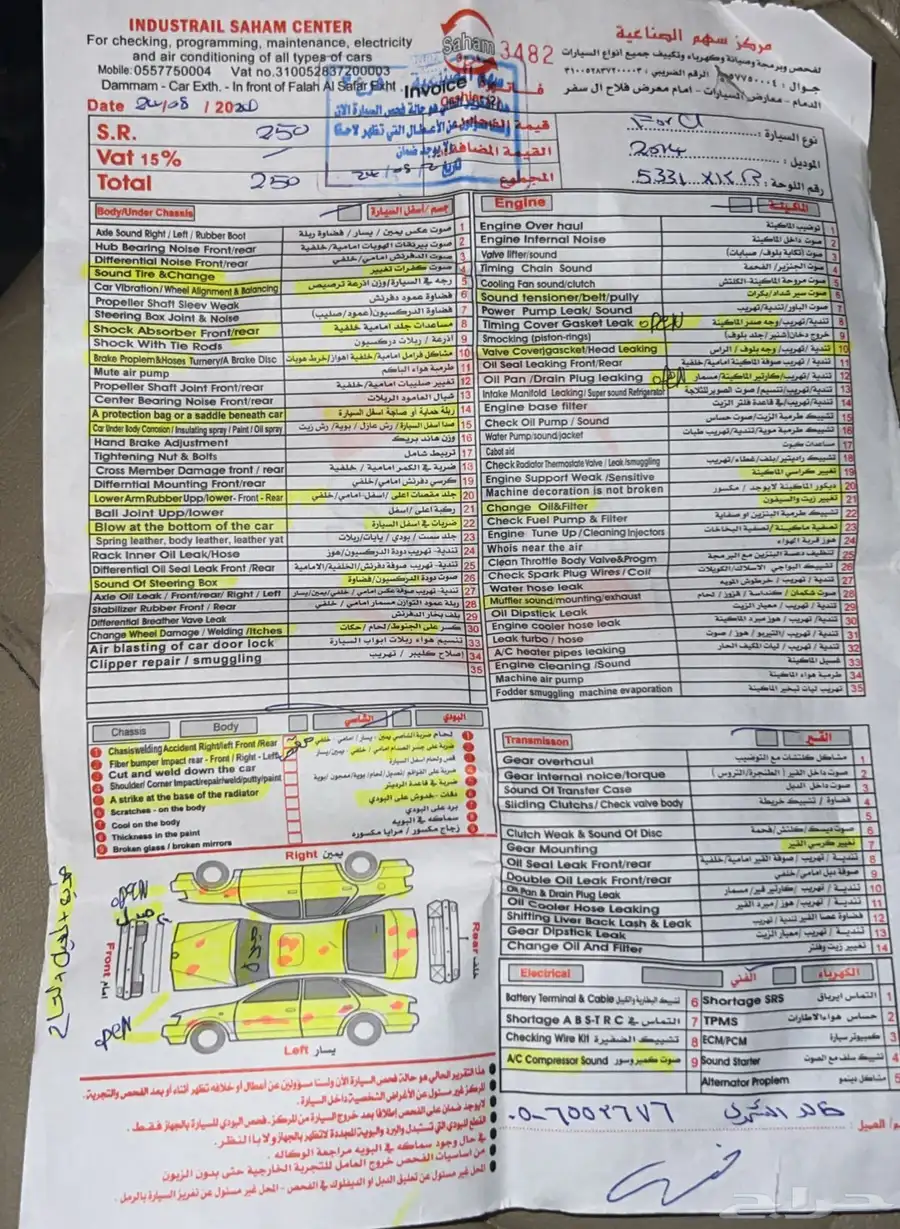 INDUSTRAIL SAHAM CENTER
For checking, programming, maintenance, electricity
and air conditioning of all types of cars
Mobile: 0557750004 Vat no.310052837200003
Dammam - Car Exth. - In front of Falah Al Safar Exht
Saham
3482
مركز سهم الصناعية
لفحص وبرمجة وصيانة وكهرباء وتكييف جميع انواع السيارات
الدمام - معارض السيارات - امام معرض فلاح ال سفر
Invoice
Date 24/08 / 2020
S.R. 250 قيمة
Vat 15% القيمة المضافة
Total 250 المجموع
نوع السيارة : Ford
الموديل : 2014
رقم اللوحة : 5331
Body/Under Chassis جسم / أسفل السيارة
Axle Sound Right / Left / Rubber Boot صوت عكس يمين / يسار / فضاوة ربلة 1
Hub Bearing Noise Front/rear صوت بيرنقات الهوبات امامية/خلفية 2
Differential Noise Front/rear صوت الدفرنش امامي/خلفي 3
Sound Tire &Change صوت كفرات تغيير 4
Car Vibration/ Wheel Alignment & Balancing رجه في السيارة/وزن اذرعة ترصيص 5
Propeller Shaft Sleev Weak فضاوة عمود دفرنش 6
Steering Box Joint & Noise فضاوة الدركسيون/عمود/صليب) 7
Shock Absorber Front/rear مساعدات جلد امامية خلفية 8
Shock With Tie Rods أذرعة / ربلات دركسيون 9
Brake Proplem&Hoses Turnery/A Brake Disc مشاكل فرامل امامية/خلفية اهواز/خرط هوبات 10
Mute air pump طرمبة هواء الباكم 11
Propeller Shaft Joint Front/rear تغيير صليبات امامية/خلفية 12
Center Bearing Noise Front/rear شيال العامود الربلات 13
A protection bag or a saddle beneath car ربلة حماية أو صاجة اسفل السيارة 14
Car Under Body Corrosion / Insulating spray / Paint / Oil spray صدا اسفل السيارة / رش عازل / بوية / رش زيت 15
Hand Brake Adjustment وزن هاند بريك 16
Tightening Nut & Bolts تربيط شامل 17
Cross Member Damage front / rear ضربة في الكمر امامية / خلفية 18
Differntial Mounting Front/rear كرسي دفرنش امامي/خلفي 19
Lower Arm Rubber Upp/lower- Front - Rear جلد مقصات اعلى /اسفل- امامي/خلفي 20
Ball Joint Upp/lower ركبة اعلى / اسفل 21
Blow at the bottom of the car ضربات في اسفل السيارة 22
Spring leather, body leather, leather yat جلد سست / بودي / يايات/ربلات 23
Rack Inner Oil Leak/Hose تندية- تهريب دودة الدركسيون/هوز 24
Differential Oil Seal Leak Front /Rear تندية- تهريب صوفة دفرنش/الخلفية/الامامية 25
Sound Of Steering Box صوت دودة الدركسيون/فضاوة 26
Axle Oil Leak / Front/rear/ Right / Left تندية- تهريب صوفة عكس امامي / خلفي /يمين/يسار 27
Stabilizer Rubber Front / Rear ربلة عمود التوازن مسمار امامي / خلفي 28
Differential Breather Vave Leak بلف بخار الدفرنش 29
Change Wheel Damage / Welding /Itches كسر على الجنوط/لحام/حكات 30
Air blasting of car door lock تنسيم هواء ربلات ابواب السيارة 33
Clipper repair / smuggling إصلاح كليبر / تهريب 34
35
Engine الماكينة
Engine Over haul توضيب الماكينة 1
Engine Internal Noise صوت داخل الماكينة 2
Valve lifter/sound صوت (تكاية بلوف/ صبابات) 3
Timing Chain Sound صوت الجنزير/ الفحمة 4
Cooling Fan sound/clutch صوت مروحة الماكينة-الكلتش 5
Sound tensioner/belt/pully صوت سير شداد/بكرات 6
Power Pump Leak/ Sound تندية/تهريب/الباور/صوت 7
Timing Cover Gasket Leak OPEN تندية/تهريب/وجه صدر الماكينة 8
Smocking (piston-rings) خروج دخان(شنبر/جلد بلوف) 9
Valve Cover/gascket/Head Leaking تندية / تهريب/ وجه بلوف / الراس 10
Oil Seal Leaking Front/Rear تندية/تهريب صوفة الماكينة امامية/خلفية 11
Oil Pan /Drain Plug leaking OPEN تندية/تهريب/كارتير الماكينة/مسمار 12
Intake Manifold Leaking/ Super sound Refrigerator تندية/تهريب/تنسيم/ صوت الصوبر للثلاجة 13
Engine base filter تندية/تهريب/في قاعدة فلتر الزيت 14
Check Oil Pump / Sound تشييك طرمبة الزيت/صوت حساس 15
Water Pump/sound/jacket تشييك طرمبة موية/تندية/تهريب طبات 16
Cabot aid مساعدات كبوت 17
Check Radiator Thermostate Valve / Leak /smuggling تشييك راديتير/بلف/غطاء/تهريب 18
Engine Support Weak /Sensitive تغيير كراسي الماكينة 19
Machine decoration is not broken ديكور الماكينة لايوجد / مكسور 20
Change Oil&Filter تغيير زيت والسيفون 21
Check Fuel Pump & Filter تشييك طرمبة البنزين او صفاية 22
Engine Tune Up /Cleaning Injectors تصفية ماكينة/تصفية البخاخات 23
Whois near the air هوز قربة الهواء 24
Clean Throttle Body Valve&Progm تنظيف دعسة البنزين مع البرمجة 25
Check Spark Plug Wires / Coil تشييك البواجي /الاسلاك/الكويلات 26
Water hose leak تندية / تهريب / خرطوش الموية 27
Muffler sound/mounting/exhaust صوت شكمان / كنداسة / قزوز / لحام 28
Oil Dipstick Leak تندية / تهريب / معيار الزيت 29
Engine cooler hose leak تندية / تهريب / هوز مبرد الماكينة 30
Leak turbo / hose تندية / تهريب / التيربو / هوز / صوت 31
A/C heater pipes leaking تندية / تهريب / ليات المكيف الحار 32
Engine cleaning /Sound غسيل الماكينة 33
Machine air pump طرمبة هواء الماكينة 34
Fodder smuggling machine evaporation تهريب ليات تبخير الماكينة 35
Chassis Body الشاصي البودي
Chasiswelding Accident Right/left Front /Rear لحام ضربة الشاصي يمين - يسار / امامي / خلفي
Fiber bumper Impact rear - Front / Right - Left ضربة على جسر الصدام امامي / خلفي - يمين/يسار
Cut and weld down the car قص ولحام اسفل السيارة
Shoulder/ Corner Impact/repair/weld/putty/paint ضربة على القوائم / تعديل/ لحام / بوية / معجون / بوية
A strike at the base of the radiator ضربة في قاعدة الرديتر
Scratches - on the body دقات - خدوش على البودي
Cool on the body برد على البودي
Thickness in the paint سماكه في البويه
Broken glass / broken mirrors زجاج مكسور / مرايا مكسوره
Right يمين
OPEN
Front امام
Rear خلف
OPEN
Left يسار
Transmisson القير
Gear overhaul مشاكل كلتشات مع التوضيب 1
Gear Internal noice/torque صوت داخل القير / الطنجرة/التروس ) 2
Sound Of Transfer Case صوت داخل الدبل 3
Sliding Clutchs/ Check valve body فضاوة / تشييك خريطة 4
5
Clutch Weak & Sound Of Disc صوت ديسك/كلتش/فحمة 6
Gear Mounting تغيير كرسي القير 7
Oil Seal Leak Front/rear تندية / تهريب / صوفة القير امامية/خلفية 8
Double Oil Leak Front/rear صوفة دبل امامي/خلفي 9
Oil Pan & Drain Plug Leak تندية / تهريب / كارتير قير/ مسمار 10
Oil Cooler Hose Leaking تندية / تهريب / هوز / مبرد القير 11
Shifting Liver Back Lash & Leak فضاوة عصا القير تندية/ تهريب 12
Gear Dipstick Leak تندية / تهريب / معيار الزيت 13
Change Oil And Filter تغيير زيت وفلتر 14
Electrical الفني الكهرباء
Battery Terminal & Cable تشييك البطارية والكيبل 6 Shortage SRS التماس ايرباق 1
Shortage A B S-T R C التماس في 7 TPMS حساس هواء الاطارات 2
Checking Wire Kit تشييك الضفيرة 8 ECM/PCM كمبيوتر سيارة 3
A/C Compressor Sound صوت كمبروسور 9 Sound Starter تشييك سلف مع الصوت 4
Alternator Proplem مشاكل دينمو 5
هذا التقرير الحالي هو حالة فحص السيارة الآن ولسنا مسؤولين عن أعطال أو خلافه تظهر أثناء أو بعد الفحص والتجربة.
المركز غير مسئول عن الأغراض الشخصية داخل السيارة.
لا يوجد ضمان على الفحص إطلاقا بعد خروج السيارة من المركز. فحص البودي للسيارة بالجهاز فقط.
القطع للبودي التي تستبدل والبرد والبوية المجددة لاتظهر بالجهاز ولا بالنظر.
في حال وجود سماكه في البويه مراجعة الوكاله.
من اساسيات الفحص خروج العامل للتجربة الخارجية حتى بدون الزبون
المحل غير مسئول عن تعليق الدبل او الديفلوك في الفحص - المحل غير مسئول عن تغريز السيارة بالرمل.
م/ العميل :
حراج